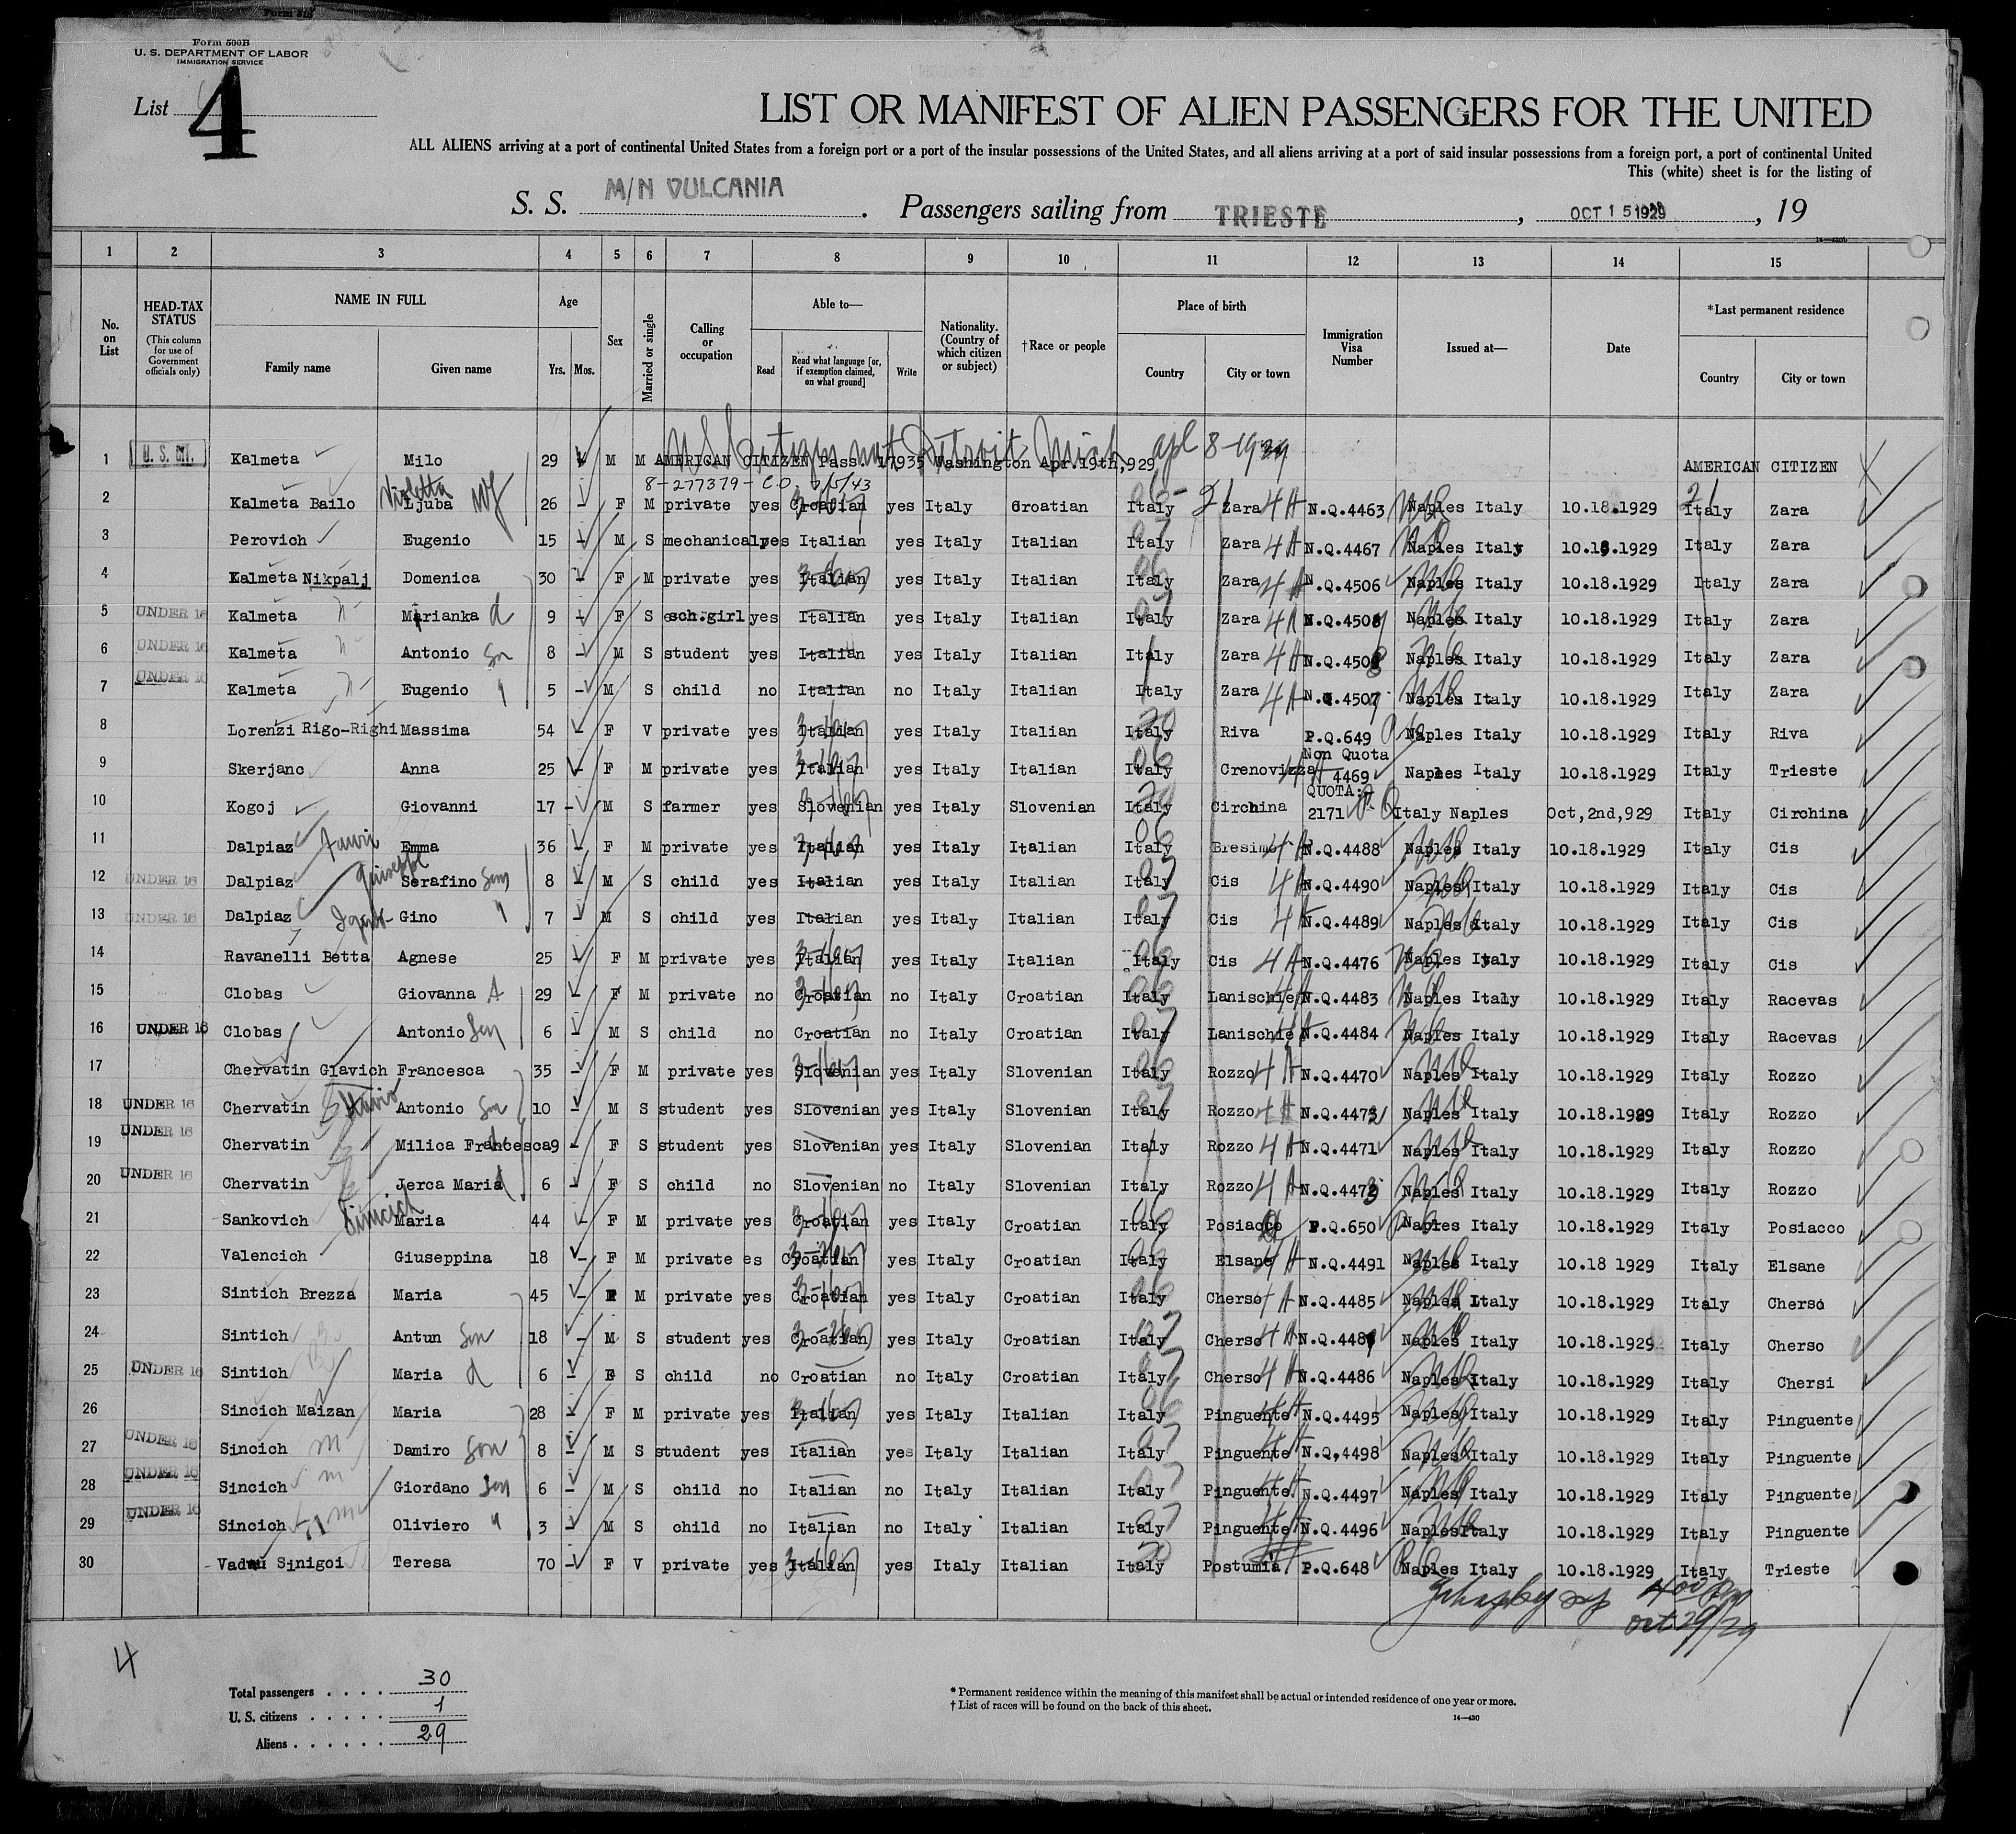 Form 500B
U. S. DEPARTMENT OF LABOR
IMMIGRATION SERVICE
List 4
LIST OR MANIFEST OF ALIEN PASSENGERS FOR THE UNITED
ALL ALIENS arriving at a port of continental United States from a foreign port or a port of the insular possessions of the United States, and all aliens arriving at a port of said insular possessions from a foreign port, a port of continental United
This (white) sheet is for the listing of
S. S. M/N VULCANIA. Passengers sailing from TRIESTE, OCT 15 1929, 19
1 2 3 4 5 6 7 8 9 10 11 12 13 14 15
No. on List HEAD-TAX STATUS (This column for use of Government officials only) NAME IN FULL Family name Given name Age Yrs. Mos. Sex Married or single Calling or occupation Able to— Read Read what language [or, if exemption claimed, on what ground] Write Nationality. (Country of which citizen or subject) †Race or people Place of birth Country City or town Immigration Visa Number Issued at— Date *Last permanent residence Country City or town
U S Citizen nat Detroit Mich apl 8-1929
1 U. S. CIT. Kalmeta Milo 29 M M AMERICAN CITIZEN Pass. 17935 Washington Apr.19th,929 AMERICAN CITIZEN
8-277379-C.O.
2 Kalmeta Bailo Violetta Ljuba wf 26 - F M private yes Croatian yes Italy Croatian Italy Zara 4A N.Q.4463 Naples Italy 10.18.1929 Italy Zara
3 Perovich Eugenio 15 - M S mechanical yes Italian yes Italy Italian Italy Zara 4A N.Q.4467 Naples Italy 10.18.1929 Italy Zara
4 Kalmeta Nikpalj Domenica 30 - F M private yes Italian yes Italy Italian Italy Zara 4A N.Q.4506 Naples Italy 10.18.1929 Italy Zara
5 UNDER 16 Kalmeta Marianka d 9 - F S sch.girl yes Italian yes Italy Italian Italy Zara 4A Naples Italy 10.18.1929 Italy Zara
6 UNDER 16 Kalmeta Antonio Son 8 - M S student yes Italian yes Italy Italian Italy Zara 4A Naples Italy 10.18.1929 Italy Zara
7 UNDER 16 Kalmeta Eugenio " 5 - M S child no Italian no Italy Italian Italy Zara 4A N.Q.4507 Naples Italy 10.18.1929 Italy Zara
8 Lorenzi Rigo-Righi Massima 54 - F V private yes Italian yes Italy Italian Italy Riva P.Q.649 Naples Italy 10.18.1929 Italy Riva
9 Skerjanc Anna 25 - F M private yes Italian yes Italy Italian Italy Crenovizza Non Quota 4469 Naples Italy 10.18.1929 Italy Trieste
10 Kogoj Giovanni 17 - M S farmer yes Slovenian yes Italy Slovenian Italy Circhina QUOTA: 2171 Italy Naples Oct,2nd,929 Italy Circhina
11 Dalpiaz Emma 36 - F M private yes Italian yes Italy Italian Italy Bresimo 4A N.Q.4488 Naples Italy 10.18.1929 Italy Cis
12 UNDER 16 Dalpiaz Giuseppe Serafino Son 8 - M S child yes Italian yes Italy Italian Italy Cis 4A N.Q.4490 Naples Italy 10.18.1929 Italy Cis
13 UNDER 16 Dalpiaz Gino " 7 - M S child yes Italian yes Italy Italian Italy Cis 4A N.Q.4489 Naples Italy 10.18.1929 Italy Cis
14 Ravanelli Betta Agnese 25 - F M private yes Italian yes Italy Italian Italy Cis 4A N.Q.4476 Naples Italy 10.18.1929 Italy Cis
15 Clobas Giovanna 29 - F M private no Croatian no Italy Croatian Italy Lanischie N.Q.4483 Naples Italy 10.18.1929 Italy Racevas
16 UNDER 16 Clobas Antonio Son 6 - M S child no Croatian no Italy Croatian Italy Lanischie N.Q.4484 Naples Italy 10.18.1929 Italy Racevas
17 Chervatin Glavich Francesca 35 - F M private yes Slovenian yes Italy Slovenian Italy Rozzo 4A N.Q.4470 Naples Italy 10.18.1929 Italy Rozzo
18 UNDER 16 Chervatin Antonio Son 10 - M S student yes Slovenian yes Italy Slovenian Italy Rozzo 4A N.Q.4472 Naples Italy 10.18.1929 Italy Rozzo
19 UNDER 16 Chervatin Milica Francesca 9 - F S student yes Slovenian yes Italy Slovenian Italy Rozzo 4A N.Q.4471 Naples Italy 10.18.1929 Italy Rozzo
20 UNDER 16 Chervatin Jerca Maria d 6 - F S child no Slovenian no Italy Slovenian Italy Rozzo 4A N.Q.4473 Naples Italy 10.18.1929 Italy Rozzo
21 Sankovich Sincich Maria 44 - F M private yes Croatian yes Italy Croatian Italy Posiacco P.Q.650 Naples Italy 10.18.1929 Italy Posiacco
22 Valencich Giuseppina 18 - F M private es Croatian yes Italy Croatian Italy Elsane 4A N.Q.4491 Naples Italy 10.18 1929 Italy Elsane
23 Sintich Brezza Maria 45 - F M private yes Croatian yes Italy Croatian Italy Cherso 4A N.Q.4485 Naples Italy 10.18.1929 Italy Cherso
24 Sintich Antun Son 18 - M S student yes Croatian yes Italy Croatian Italy Cherso 4A Naples Italy 10.18.1929 Italy Cherso
25 UNDER 16 Sintich Maria d 6 - F S child no Croatian no Italy Croatian Italy Cherso 4A N.Q.4486 Naples Italy 10.18.1929 Italy Chersi
26 Sincich Maizan Maria 28 - F M private yes Italian yes Italy Italian Italy Pinguente 4A N.Q.4495 Naples Italy 10.18.1929 Italy Pinguente
27 UNDER 16 Sincich m Damiro Son 8 - M S student yes Italian yes Italy Italian Italy Pinguente 4A N.Q,4498 Naples Italy 10.18.1929 Italy Pinguente
28 UNDER 16 Sincich m Giordano Son 6 - M S child no Italian no Italy Italian Italy Pinguente 4A N.Q.4497 Naples Italy 10.18.1929 Italy Pinguente
29 UNDER 16 Sincich m Oliviero " 3 - M S child no Italian no Italy Italian Italy Pinguente 4A N.Q.4496 Naples Italy 10.18.1929 Italy Pinguente
30 Sinigoi Teresa 70 - F V private yes Italian yes Italy Italian Italy Postumia P.Q.648 Naples Italy 10.18.1929 Italy Trieste
Oct 29/29
4
Total passengers . . . . 30
U. S. citizens . . . . . 1
Aliens . . . . . . 29
* Permanent residence within the meaning of this manifest shall be actual or intended residence of one year or more.
† List of races will be found on the back of this sheet.
14—430